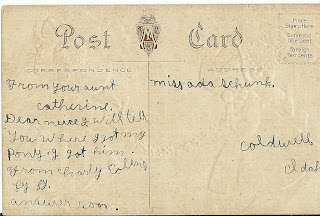 Post Card
Place
Stamp Here
Domestic
One cent
Foreign
Two cents
CORRESPONDENCE
ADDRESS
From your aunt
catherine.
Dear neice I will tell
You where I got my
Pony I got him
From Charly Collins
by
answer soon.
miss ada Schunk.
coldwell
Idah